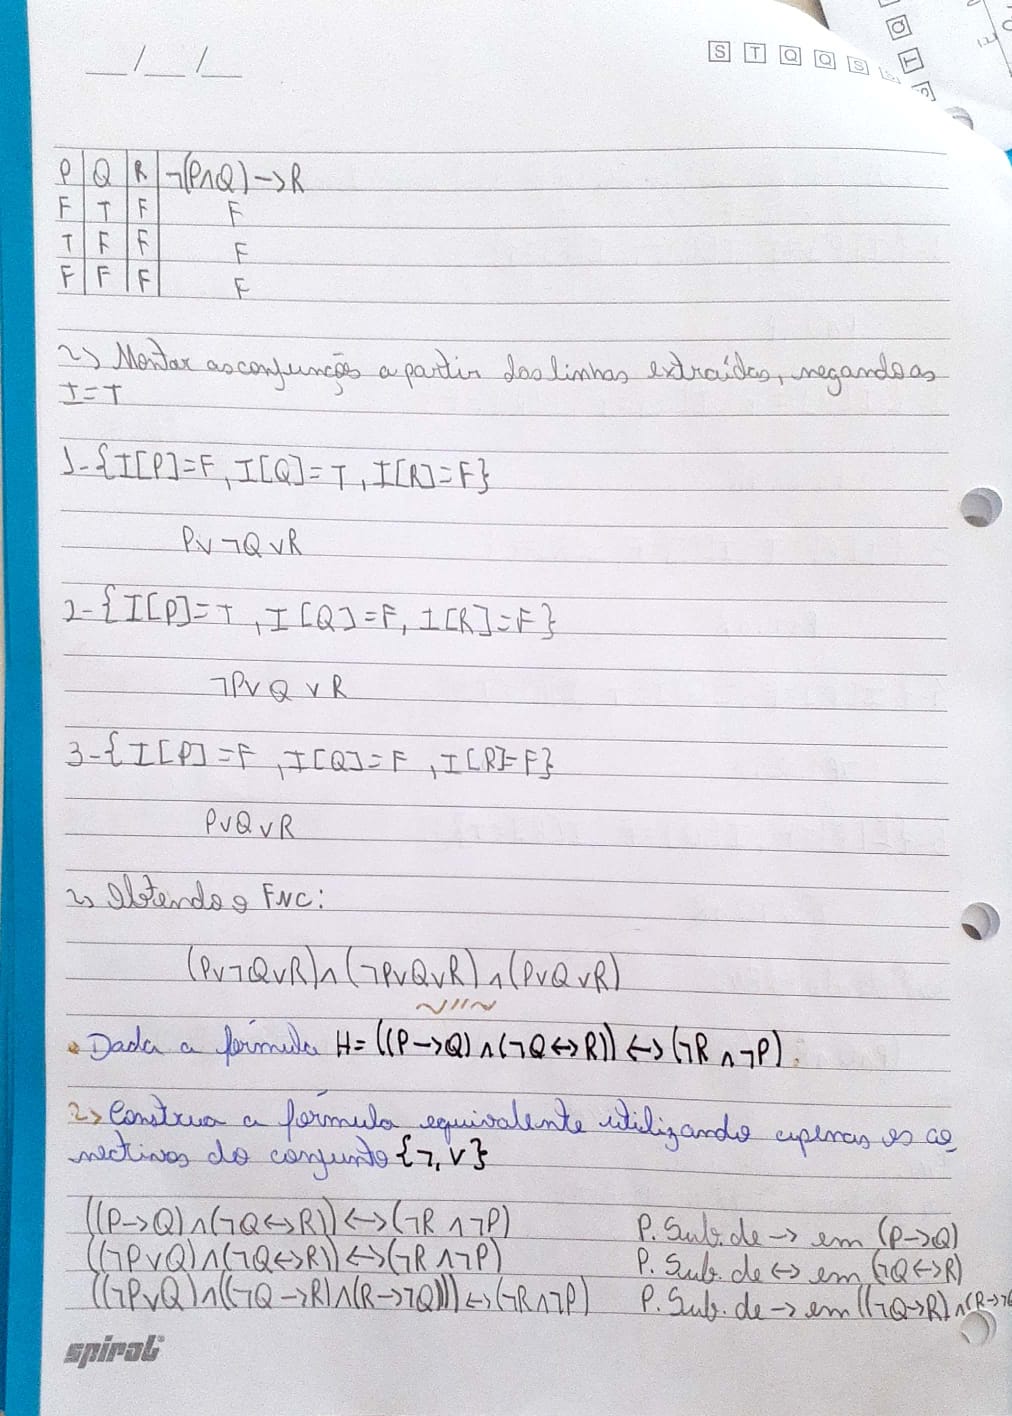 __/__/__
S T Q Q S
P Q R ¬(P∧Q)→R
F T F F
T F F F
F F F F
2> Montar as conjunções a partir das linhas extraídas, negando as
I=T
1-{I[P]=F, I[Q]=T, I[R]=F}
P∨¬Q∨R
2-{I[P]=T, I[Q]=F, I[R]=F}
¬P∨Q∨R
3-{I[P]=F, I[Q]=F, I[R]=F}
P∨Q∨R
2> Obtendo a FNC:
(P∨¬Q∨R)∧(¬P∨Q∨R)∧(P∨Q∨R)
• Dada a fórmula H=((P→Q)∧(¬Q↔R))↔(¬R∧¬P).
2> Construa a fórmula equivalente utilizando apenas os co
nectivos do conjunto {¬,∨}
((P→Q)∧(¬Q↔R))↔(¬R∧¬P) P. Sub. de → em (P→Q)
((¬P∨Q)∧(¬Q↔R))↔(¬R∧¬P) P. Sub. de ↔ em (¬Q↔R)
((¬P∨Q)∧((¬Q→R)∧(R→¬Q)))↔(¬R∧¬P) P. Sub. de → em ((¬Q→R)∧(R→¬
spiral